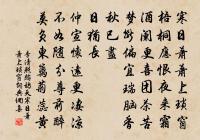 寒日蕭蕭上瑣窗
梧桐應恨夜來霜
酒闌更喜團茶苦
夢斷偏宜瑞腦香
秋已盡
日猶長
仲宣懷遠更淒涼
不如隨分尊前醉
莫負東籬菊蕊黃
李清照鷓鴣天寒日蕭
蕭上瑣窗詞